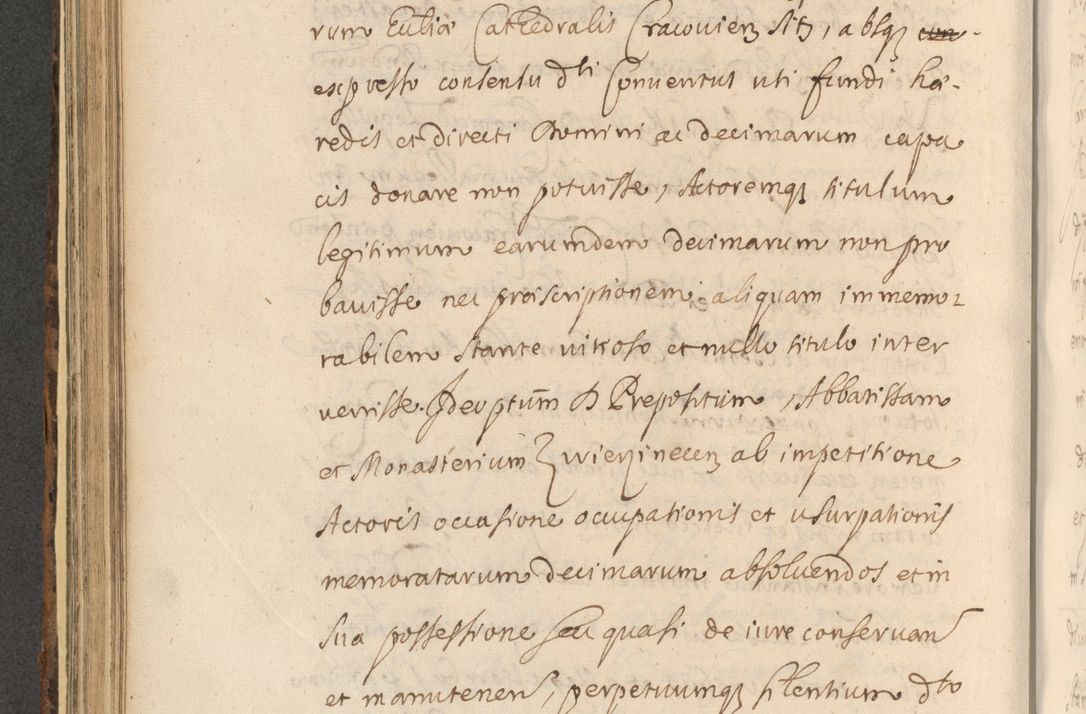 rum Eccliæ Cathedralis Cracouien sitz, absq con-
expresso consensu dti Conuentus uti fundi hæ-
redis et directi Domini ac decimarum capa
cis donare non potuisse, Actoremq titulum
legitimum earumdem decimarum non pro
bauisse nec præscriptionem aliquam immemo-
rabilem stante vitioso et nullo titulo inter
uenisse. Ideo ptum D Prepositum, Abbatissam
et Monasterium Zwierzinecen ab impetitione
Actoris occasione occupationis et usurpationis
memoratarum decimarum absoluendos et in
sua possessione seu quasi de iure conseruan
et manutenen, perpetuumq silentium dto